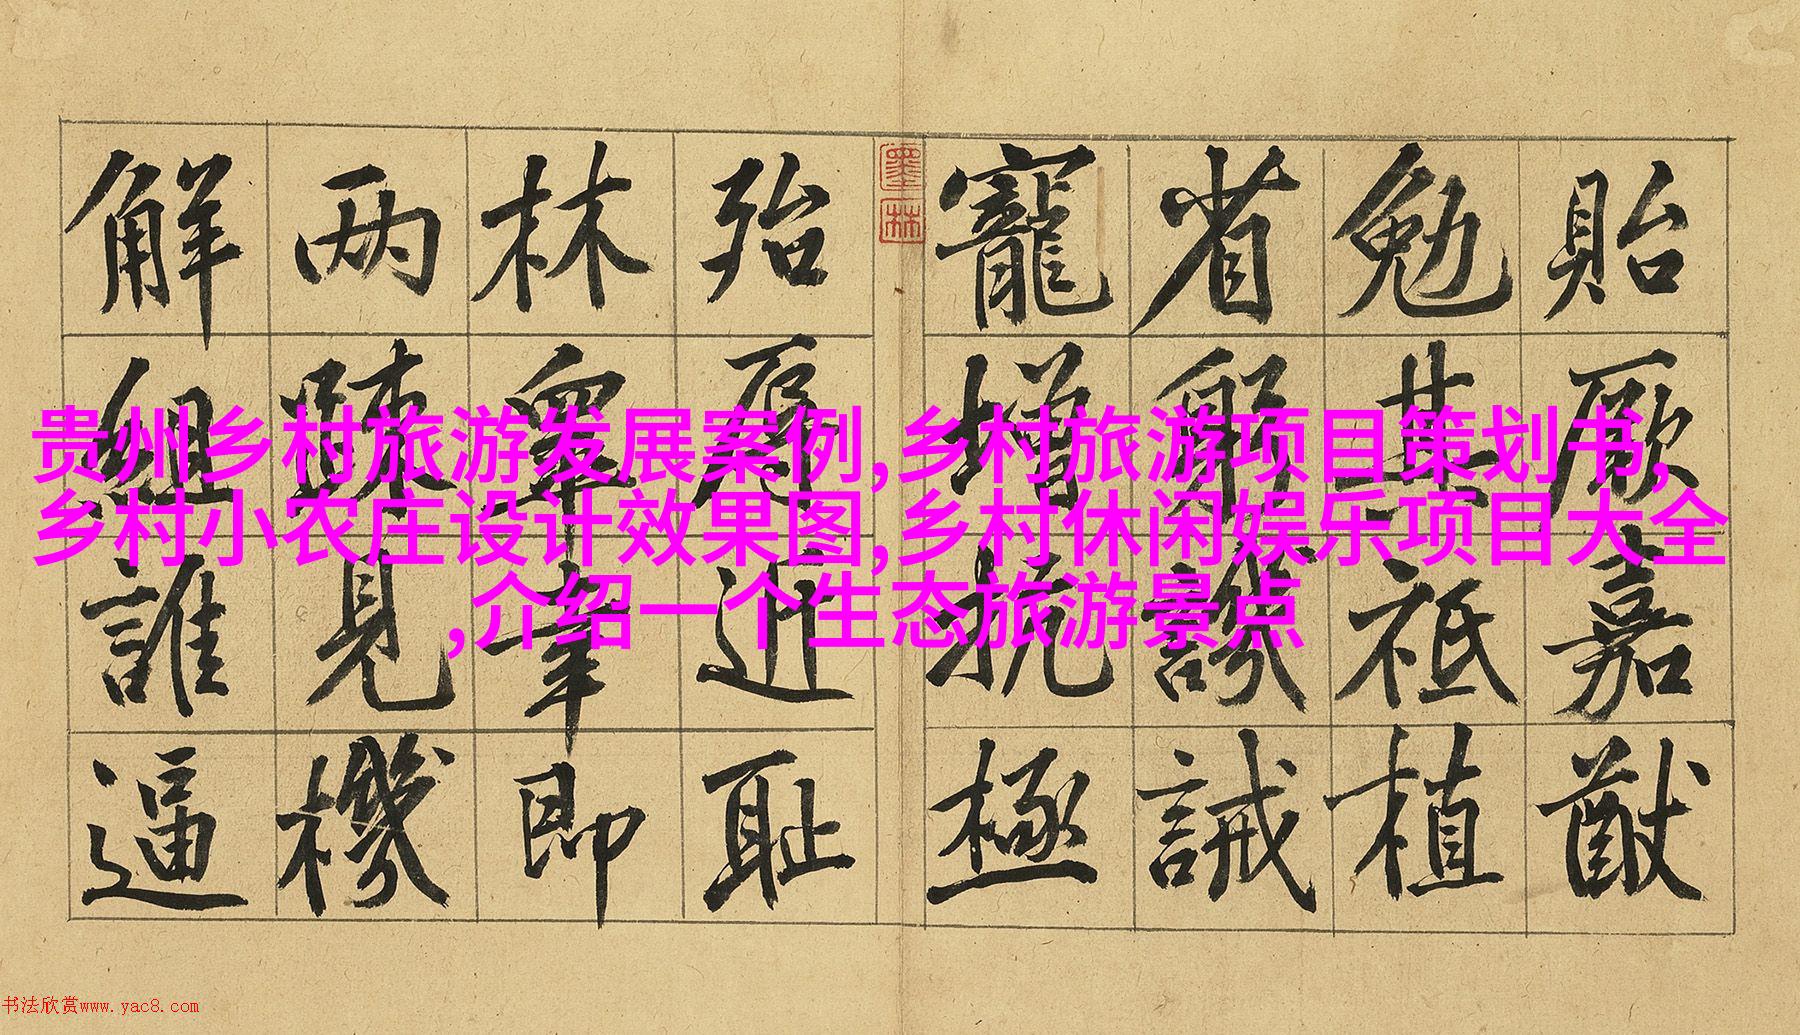 貽厥嘉猷
勉其祗植
省躬譏誡
寵增抗極
殆辱近耻
林皐幸即
两踈見機
解組誰逼
墨林
贵州乡村旅游发展案例,乡村旅游项目策划书,
乡村小农庄设计效果图,乡村休闲娱乐项目大全
,介绍一个生态旅游景点
书法欣赏www.yac8.com